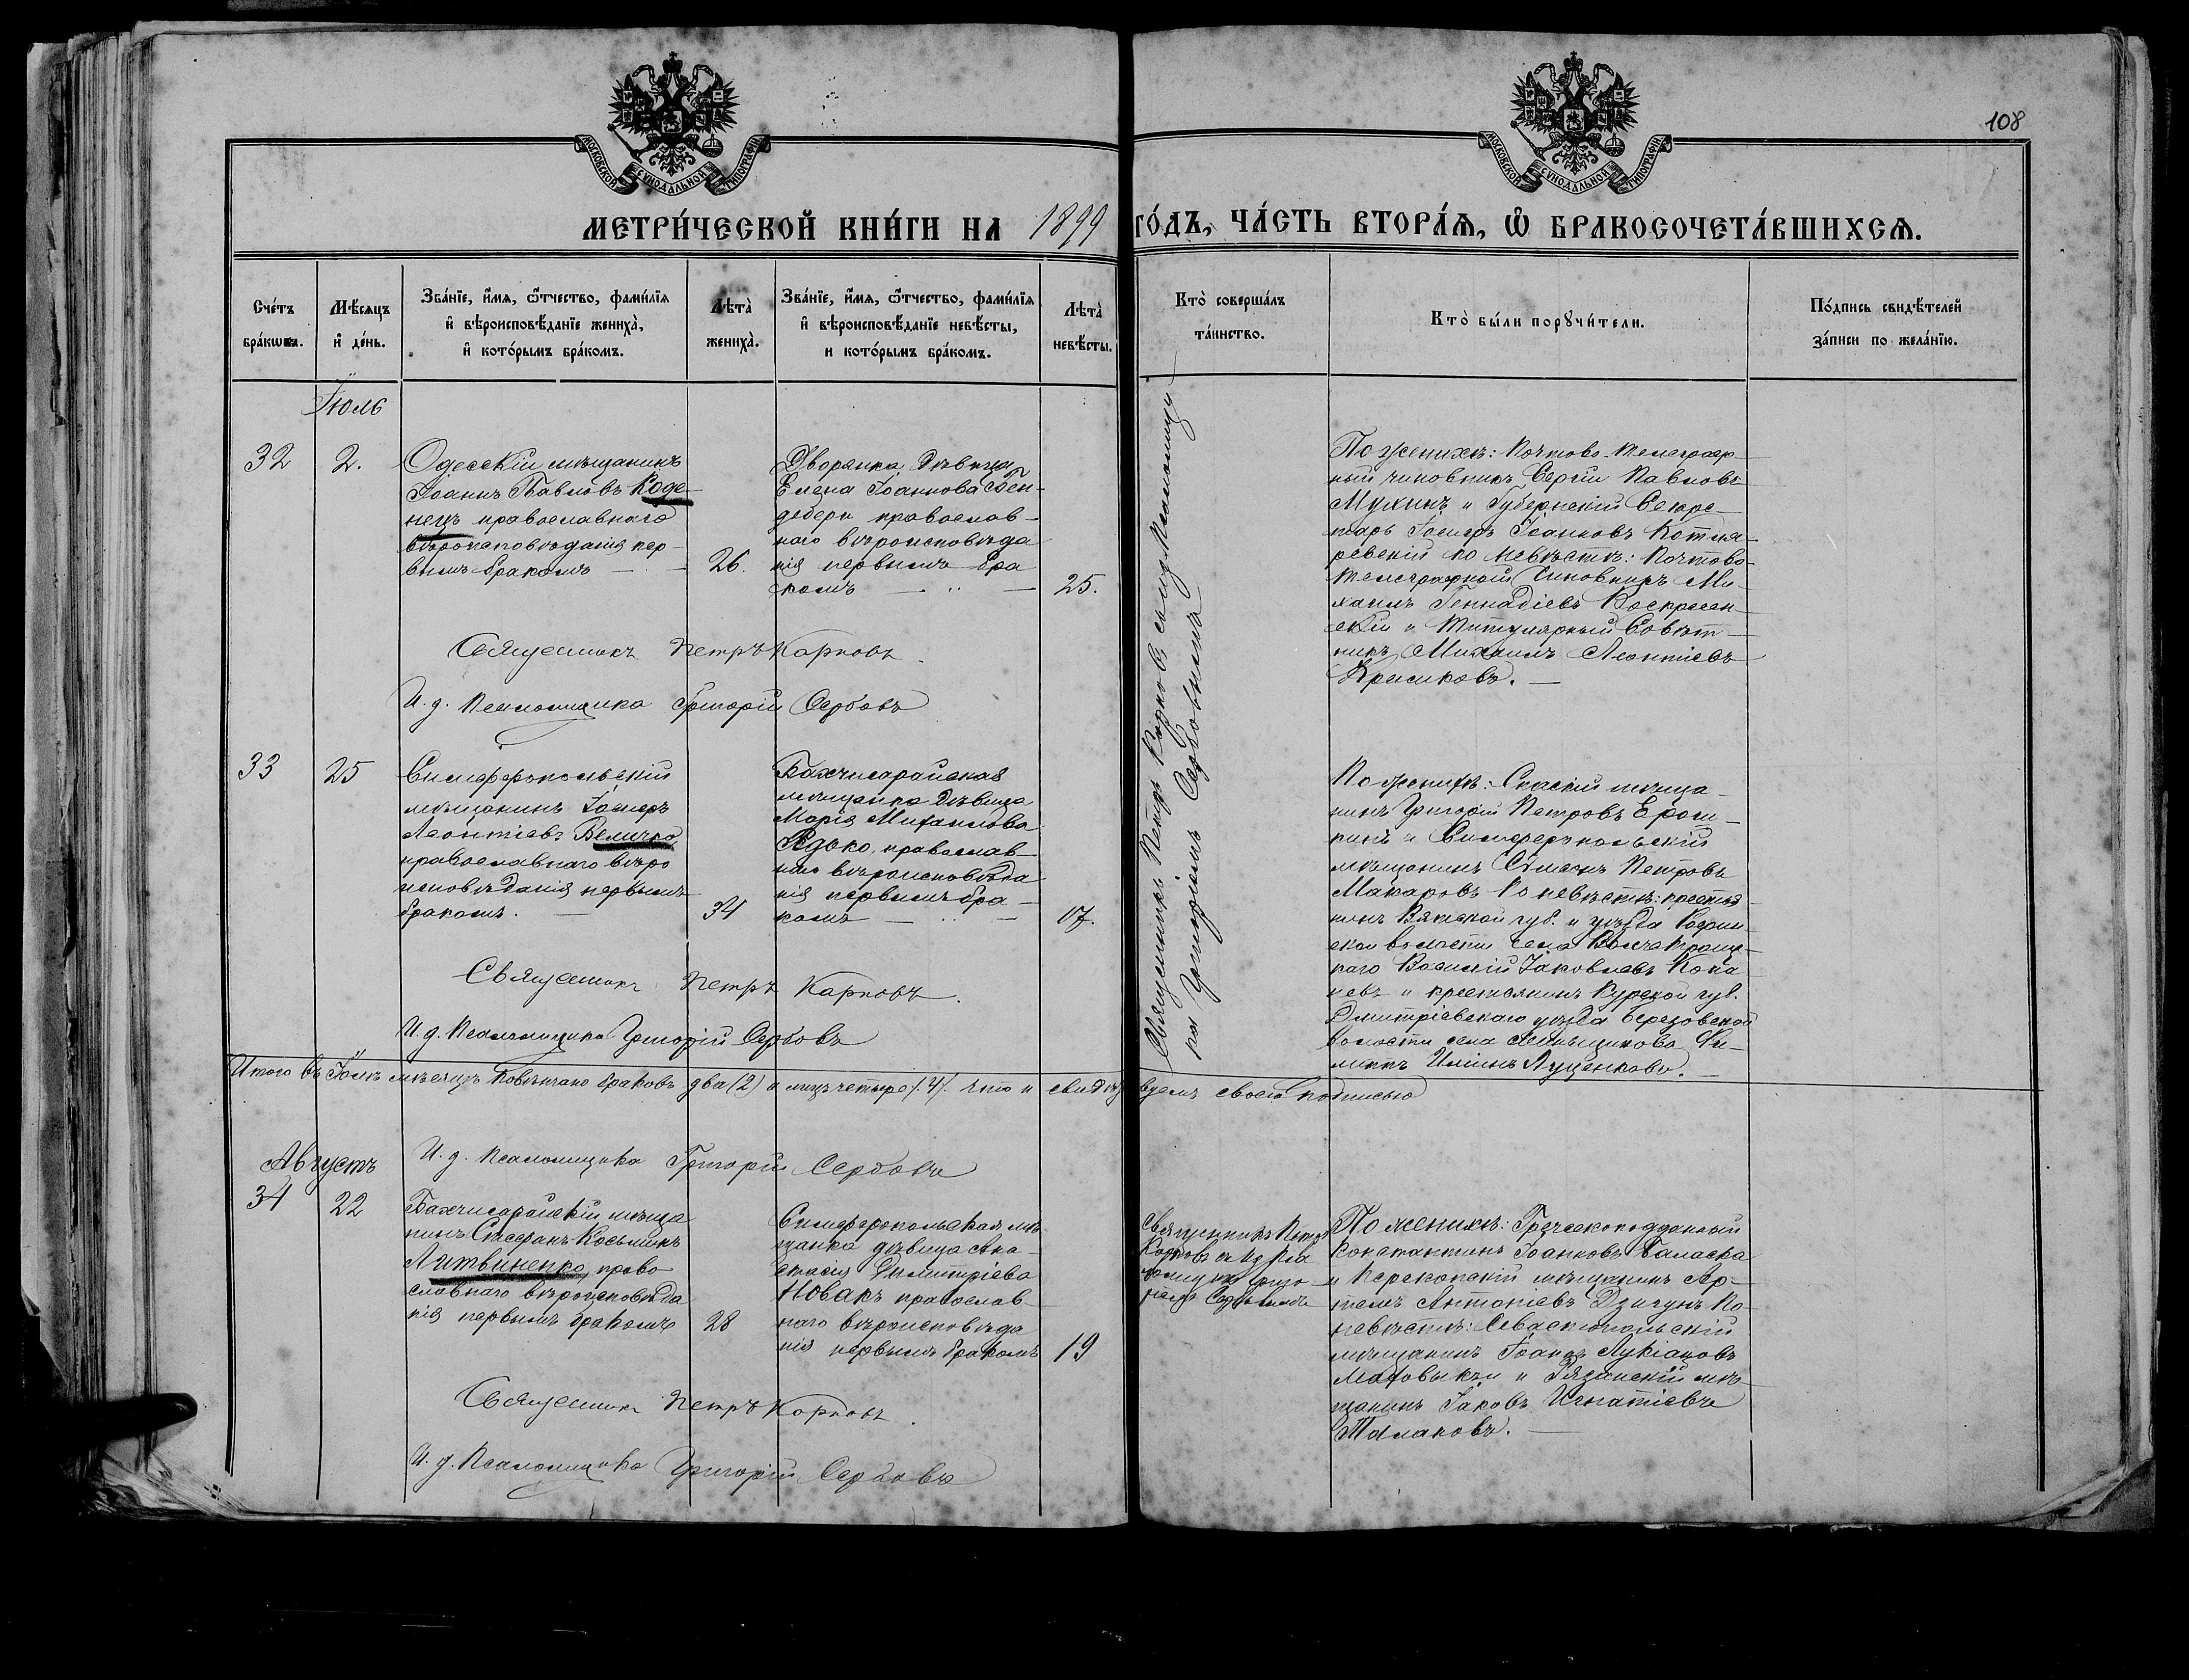 108
МОСКОВСКОЙ СѴНОДАЛЬНОЙ ТИПОГРАФІИ
МОСКОВСКОЙ СѴНОДАЛЬНОЙ ТИПОГРАФІИ
МЕТРИ́ЧЕСКОЙ КНИ́ГИ НА 1899 ГО́ДЪ, ЧА́СТЬ ВТОРА́Ѧ, Ѽ БРАКОСОЧЕТА́ВШИХСѦ.
Сче́тъ
бра́кωвъ.
Мѣ́сяцъ
и҆ де́нь.
Зва́нїе, и҆́мѧ, ѻ҆́тчество, фами́лїѧ
и҆ вѣроисповѣ́данїе жениха̀,
и҆ кото́рымъ бра́комъ.
Лѣта̀
жениха̀.
Зва́нїе, и҆́мѧ, ѻ҆́тчество, фами́лїѧ
и҆ вѣроисповѣ́данїе невѣ́сты,
и кото́рымъ бра́комъ.
Лѣта̀
невѣ́сты.
Кто̀ соверша́лъ
та́инство.
Кто̀ бы́ли порꙋчи́тели.
По́дпись свидѣ́телей
за́писи по жела́нїю.
Іюль
32
2.
Одесскій мѣщанинъ
Іоаннъ Павловъ Коде-
нецъ православнаго
вѣроисповѣданія пер-
вымъ бракомъ
26.
Дворянка, дѣвица
Елена Іоаннова Бен-
дебери православ-
наго вѣроисповѣда
нія первымъ бра
комъ
25.
Священникъ Петръ Карповъ съ и. д. псаломщи
ка Григоріемъ Сербовымъ
По женихѣ: Почтово-телеграф-
ный чиновникъ Сергій Павловъ
Мухинъ и Губернскій Секре-
тарь Іосифъ Іоанновъ Котля-
ревскій по невѣстѣ: Почтово-
телеграфный Чиновникъ Ми-
хаилъ Геннадіевъ Воскресен-
скій и Титулярный Совѣт-
никъ Михаилъ Леонтіевъ
Красиковъ.
Священникъ Петръ Карповъ.
И. д. Псаломщика Григорій Сербовъ
33
25
Симферопольскій
мѣщанинъ Іосифъ
Леонтіевъ Величко
православнаго вѣро
исповѣданія первымъ
бракомъ.
34
Бахчисарайская
мѣщанка дѣвица
Марія Михаилова
Рѣдько, православ-
наго вѣроисповѣда
нія первымъ бра-
комъ
17.
По женихѣ: Спасскій мѣща-
нинъ Григорій Петровъ Ерош-
кинъ и Симферопольскій
мѣщанинъ Симеонъ Петровъ
Макаровъ По невѣстѣ: крестья
нинъ Вятской губ. и уѣзда
ской волости села
каго Василій Іаковлевъ
невъ и крестьянинъ Курской губ.
Дмитріевскаго уѣзда Березовской
волости села
Илiинъ Луценковъ.
Священникъ Петръ Карповъ.
И. д. Псаломщика Григорій Сербовъ
Итого въ Іюлѣ мѣсяцѣ повѣнчано браковъ два (2) и лицъ четыре /.4/. что и свидѣтельствуемъ своею подписью
И. д. Псаломщика Григорій Сербовъ
Августъ
34
22
Бахчисарайскій мѣща
нинъ Стефанъ Косьминъ
Литвиненко, право-
славнаго вѣроисповѣда
нія первымъ бракомъ
28
Симферопольская мѣ-
щанка дѣвица Ана-
стасія Димитріева
Новакъ православ-
наго вѣроисповѣда
нія первымъ бракомъ
19
Священникъ Петръ
Карповъ съ и. д. пса
ломщика Григо
ріемъ Сербовымъ
По женихѣ: Греческоподданный
Константинъ Іоанновъ Баласка
и Перекопскій мѣщанинъ Ар-
темъ Антоніевъ Дзигунъ По
невѣстѣ: Севастопольскій
мѣщанинъ Іоаннъ Лукіановъ
и Рязанскій мѣ-
щанинъ Іаковъ Игнатіевъ
Талановъ.
Священникъ Петръ Карповъ.
И. д. Псаломщика Григорій Сербовъ